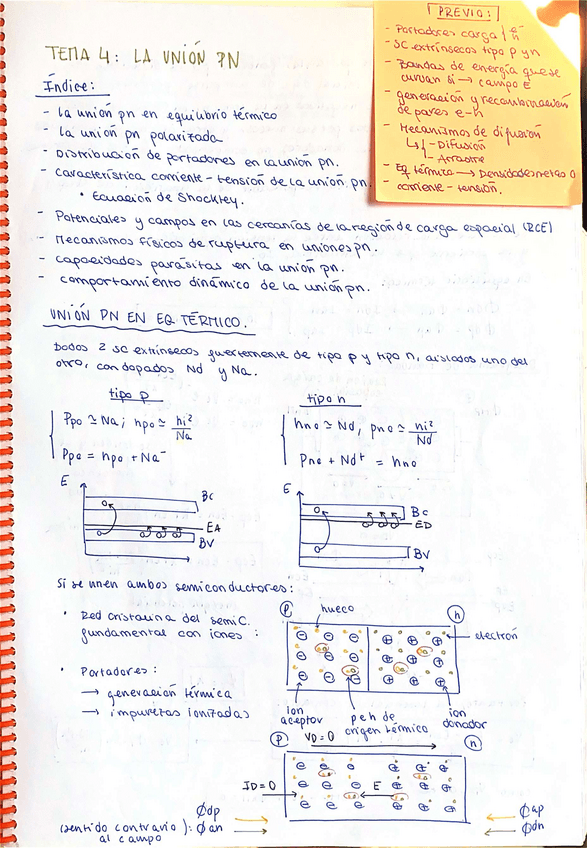 PREVIO:
- Portadores carga { e h
- SC extrínsecos tipo p y n
- Bandas de energía que se
curvan si → campo E
- generación y recombinación
de pares e-h
- Mecanismos de difusión
↳ - Difusión
- Arrastre
- Eq térmico → Densidades netas 0
- corriente - tensión.
TEMA 4: LA UNIÓN PN
Índice:
- La unión pn en equilibrio térmico
- La unión pn polarizada
- Distribución de portadores en la unión pn.
- Característica corriente - tensión de la unión pn.
• Ecuación de Shockley.
- Potenciales y campos en las cercanías de la región de carga espacial (RCE)
- Mecanismos físicos de ruptura en uniones pn.
- capacidades parásitas en la unión pn.
- comportamiento dinámico de la unión pn.
UNIÓN PN EN EQ TÉRMICO.
Dados 2 SC extrínsecos fuertemente de tipo p y tipo n, aislados uno del
otro, con dopados Nd y Na.
tipo p
Ppo ≃ Na; npo ≃ ni²/Na
Ppo = npo + Na⁻
tipo n
nno ≃ Nd, pno ≃ ni²/Nd
Pno + Nd⁺ = nno
E
BC
EA
BV
E
BC
ED
BV
Si se unen ambos semiconductores:
• Red cristalina del semiC.
fundamental con iones:
• Portadores:
→ generación térmica
→ impurezas ionizadas
P
hueco
n
electrón
ion
aceptor
p e h de
origen térmico
ion
donador
P
VD=0
n
ID=0
E
(sentido contrario): Φdp
al campo Φan
Φap
Φdn